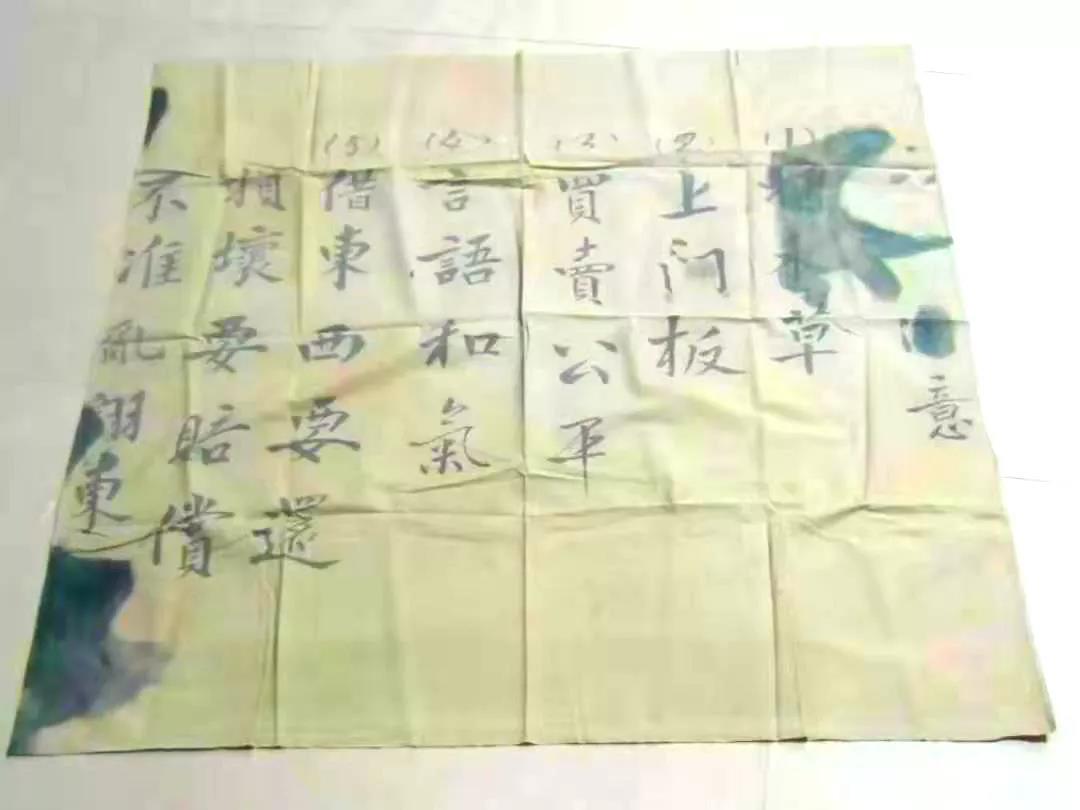 意
(1) 草
(2) 上门板
(3) 買賣公平
(4) 言語和氣
(5) 借東西要還
損壞要賠償
不准亂翻東